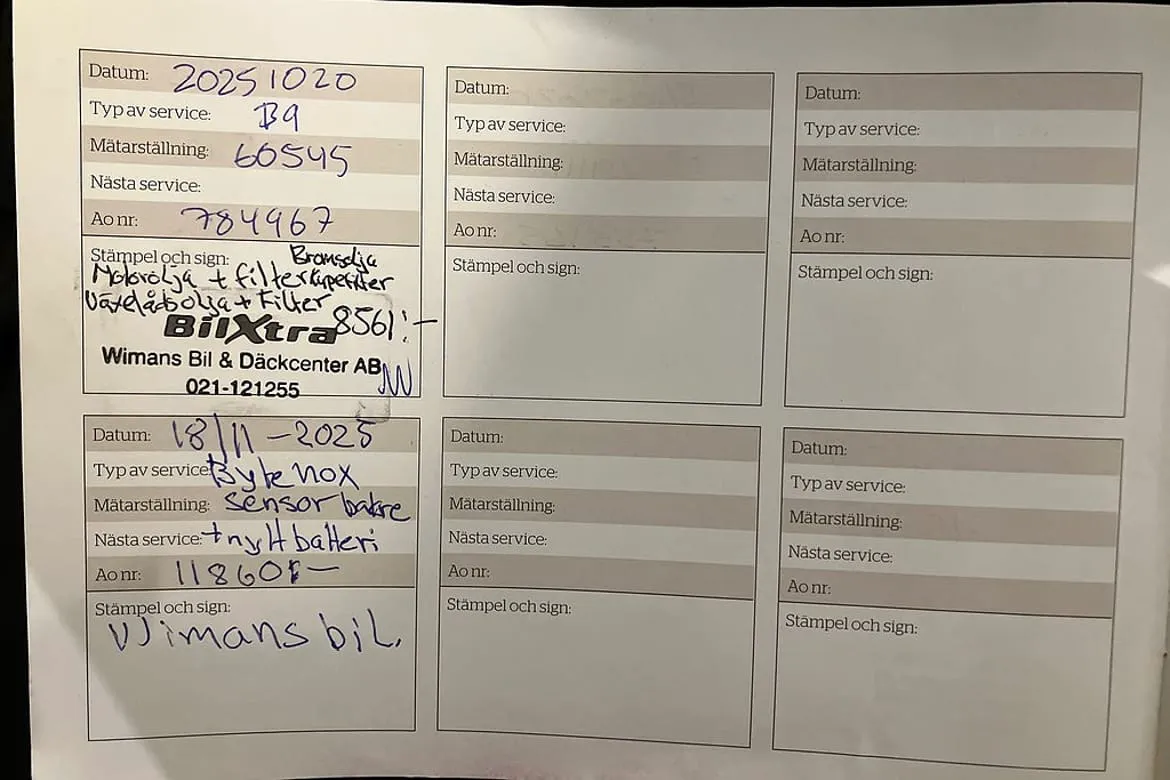 Datum: 20251020
Typ av service: B9
Mätarställning: 60545
Nästa service:
Ao nr: 784967
Stämpel och sign: Bromsolja
Motorolja + filter kupefilter
Växellådsolja + Filter
8561:-
BilXtra
Wimans Bil & Däckcenter AB
021-121255
Datum: 18/11-2025
Typ av service: Byte nox
Mätarställning: sensor bakre
Nästa service: + nytt batteri
Ao nr:
Stämpel och sign:
Wimans bil.
Datum:
Typ av service:
Mätarställning:
Nästa service:
Ao nr:
Stämpel och sign:
Datum:
Typ av service:
Mätarställning:
Nästa service:
Ao nr:
Stämpel och sign:
Datum:
Typ av service:
Mätarställning:
Nästa service:
Ao nr:
Stämpel och sign:
Datum:
Typ av service:
Mätarställning:
Nästa service:
Ao nr:
Stämpel och sign: